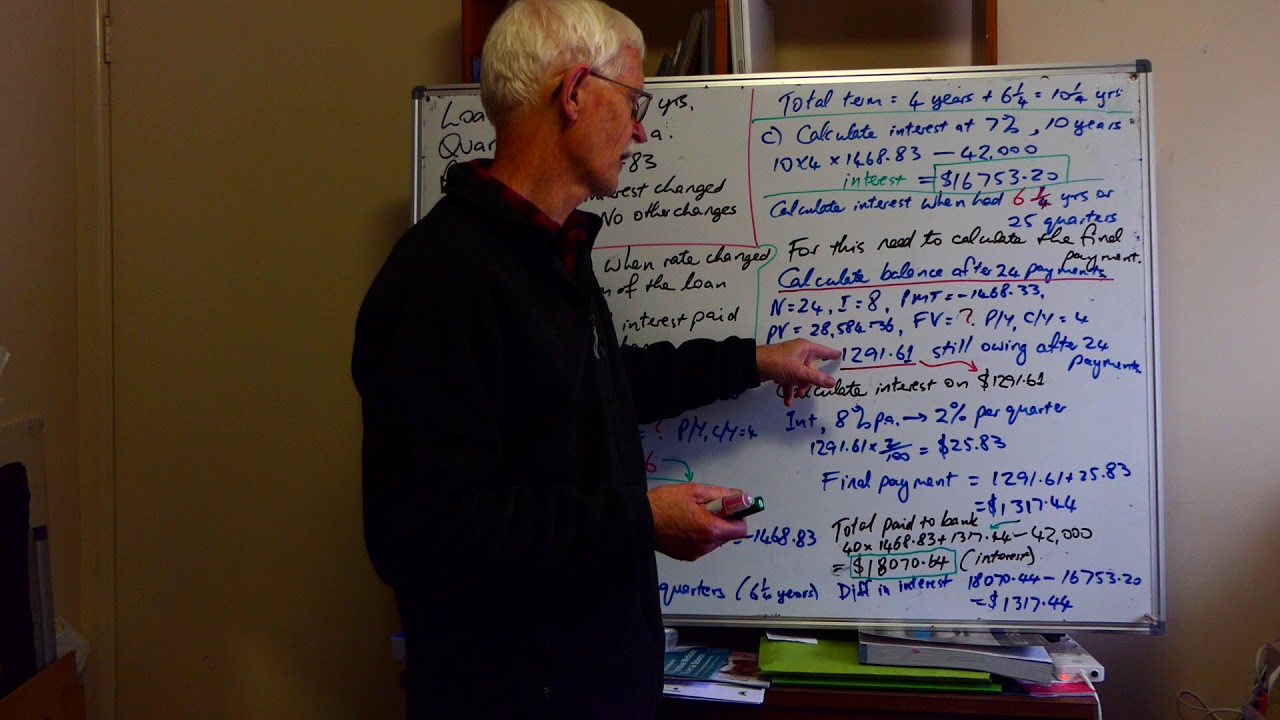 Loa
yrs.
Quar
a.
83
erest changed
No other changes
when rate changed
of the loan
interest paid
= ? P/Y, C/Y = 4
6
= -1468.83
quarters (6 1/4 years)
Total term = 4 years + 6 1/4 = 10 1/4 yrs
c) Calculate interest at 7%, 10 years
10×4×1468.83 – 42,000
interest = $16753.20
Calculate interest when had 6 1/4 yrs or
25 quarters
For this need to calculate the final
payment.
Calculate balance after 24 payments
N=24, I=8, PMT=-1468.33,
PV = 28,584.36, FV=? P/Y, C/Y = 4
1291.61 still owing after 24
payments
Calculate interest on $1291.61
Int, 8% p.a. → 2% per quarter
1291.61 × 2/100 = $25.83
Final payment = 1291.61 + 25.83
= $1317.44
Total paid to bank
40×1468.83+1317.44 – 42,000
= $18070.64 (interest)
Diff in interest 18070.44 – 16753.20
= $1317.44